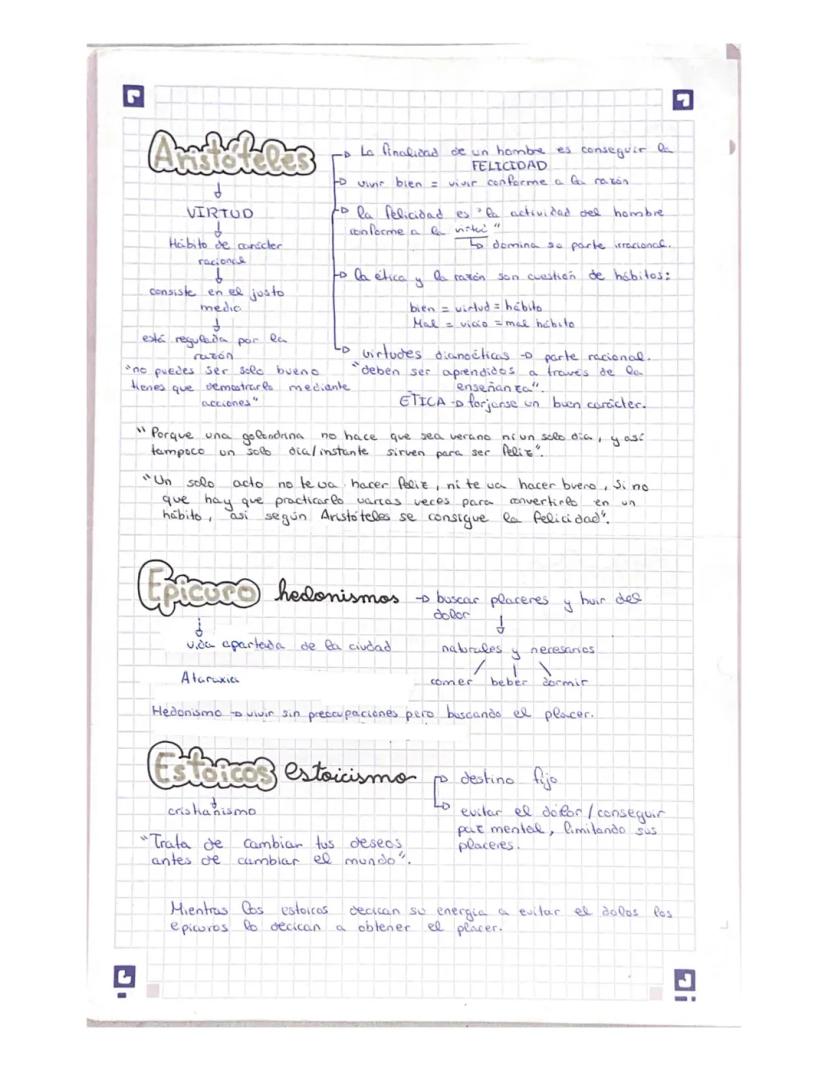 Aristóteles
↓
VIRTUD
↓
Hábito de carácter
racional
↓
consiste en el justo
medio
↓
está regulada por la
razón
"no puedes ser solo bueno
tienes que demostrarlo mediante
acciones"
→ La finalidad de un hombre es conseguir la
FELICIDAD
→ vivir bien = vivir conforme a la razón
→ la felicidad es "la actividad del hombre
conforme a la virtud"
↳ domina su parte irracional.
→ la ética y la razón son cuestión de hábitos:
bien = virtud = hábito
Mal = vicio = mal hábito
→ virtudes dianoéticas → parte racional.
"deben ser aprendidos a través de la
enseñanza".
ETICA → forjarse un buen carácter.
"Porque una golondrina no hace que sea verano ni un solo dia, y así
tampoco un solo dia/instante sirven para ser feliz".
"Un solo acto no te va hacer feliz, ni te va hacer bueno, si no
que hay que practicarlo varias veces para convertirlo en un
hábito, así según Aristóteles se consigue la felicidad".
Epicuro hedonismos → buscar placeres y huir del
dolor
↓
vida apartada de la ciudad
naturales y necesarios
Ataraxia
comer beber dormir
Hedonismo → vivir sin preocupaciones pero buscando el placer.
Estoicos estoicismo → destino fijo
↓
cristianismo
↳ evitar el dolor / conseguir
paz mental, limitando sus
placeres.
"Trata de cambiar tus deseos
antes de cambiar el mundo".
Mientras los estoicos decican su energía a evitar el dolos los
epicuros lo decican a obtener el placer.